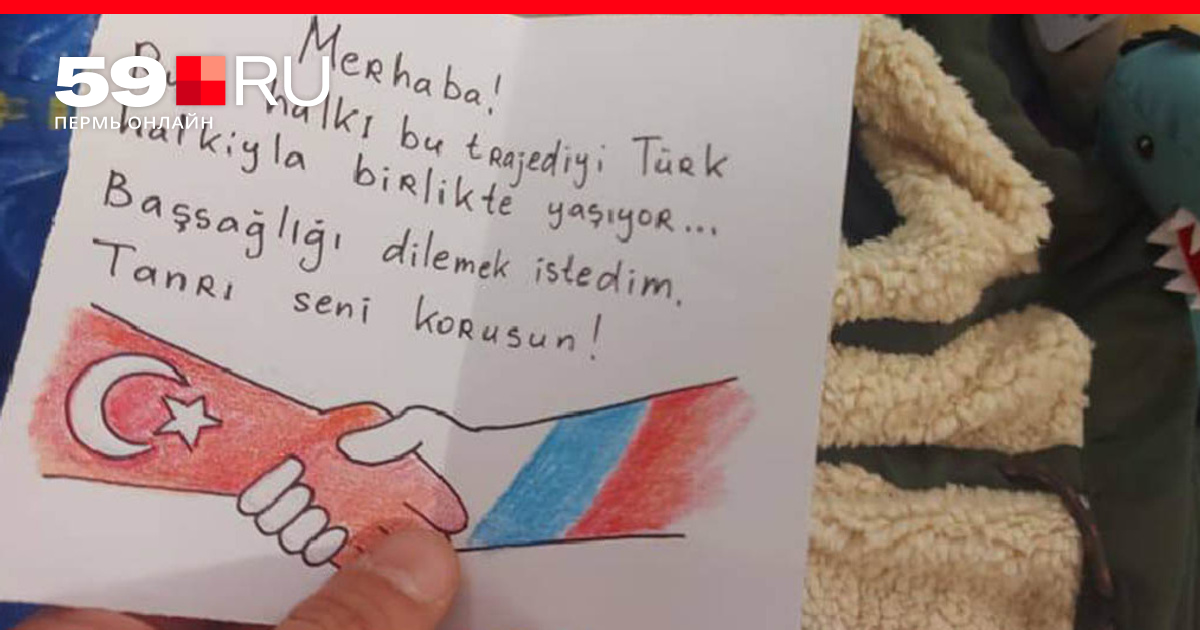 Merhaba!
halkı bu trajediyi Türk
halkiyla birlikte yaşıyor...
Başsağlığı dilemek istedim.
Tanrı seni korusun!
59.RU
ПЕРМЬ ОНЛАЙН